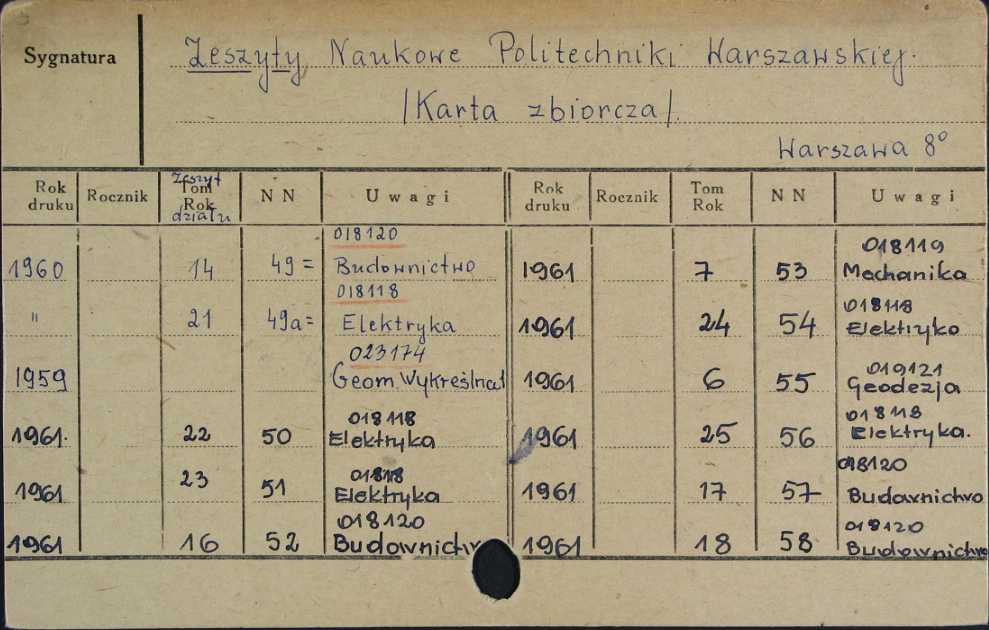 Sygnatura
Zeszyty Naukowe Politechniki Warszawskiej.
/Karta zbiorcza/.
Warszawa 8°
Rok druku Rocznik Zeszyt Tom Rok działu NN Uwagi Rok druku Rocznik Tom Rok NN Uwagi
018120
1960 14 49 = Budownictwo
018118
" 21 49a = Elektryka
023174
1959 Geom. Wykreślna
018118
1961. 22 50 Elektryka
018118
1961 23 51 Elektryka
018120
1961 16 52 Budownictw
018119
1961 7 53 Mechanika
018118
1961 24 54 Elektryka
019121
1961 6 55 Geodezja
018118
1961 25 56 Elektryka.
018120
1961 17 57 Budownictwo
018120
1961 18 58 Budownictwo